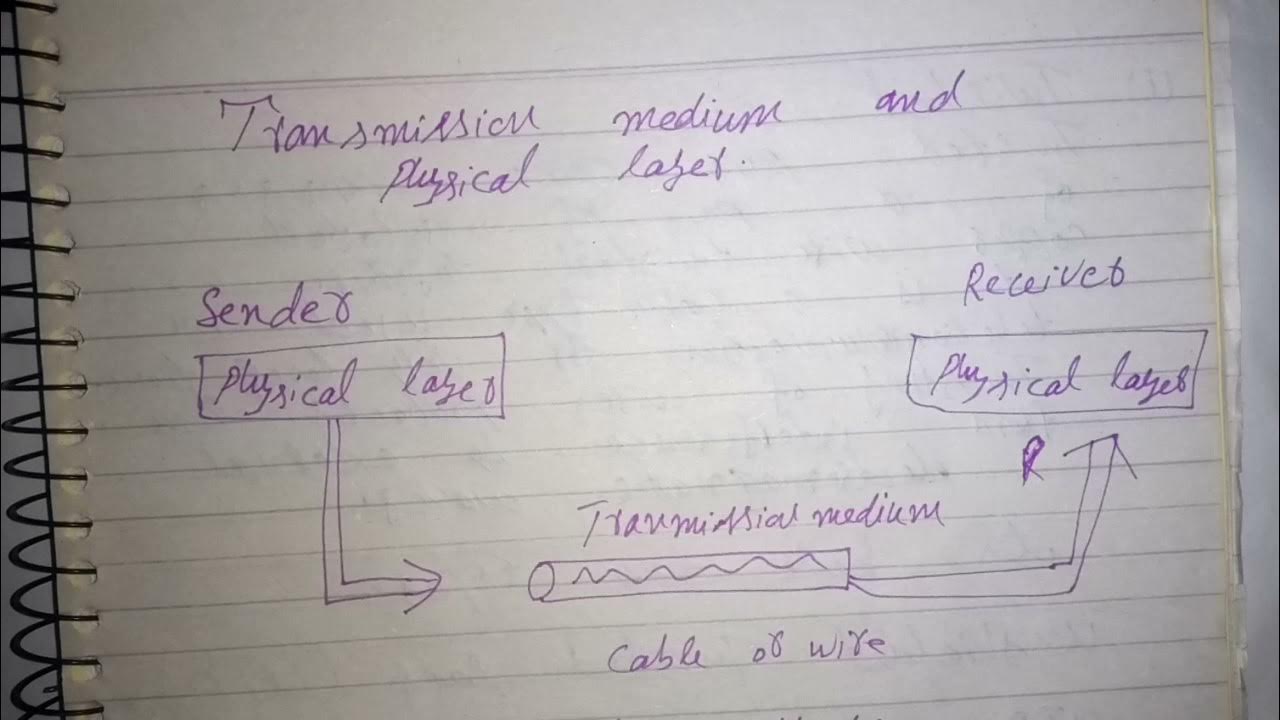 Transmission medium and
physical layer.
Sender
Receiver
physical layer
physical layer
R
Tranmission medium
Cable or wire